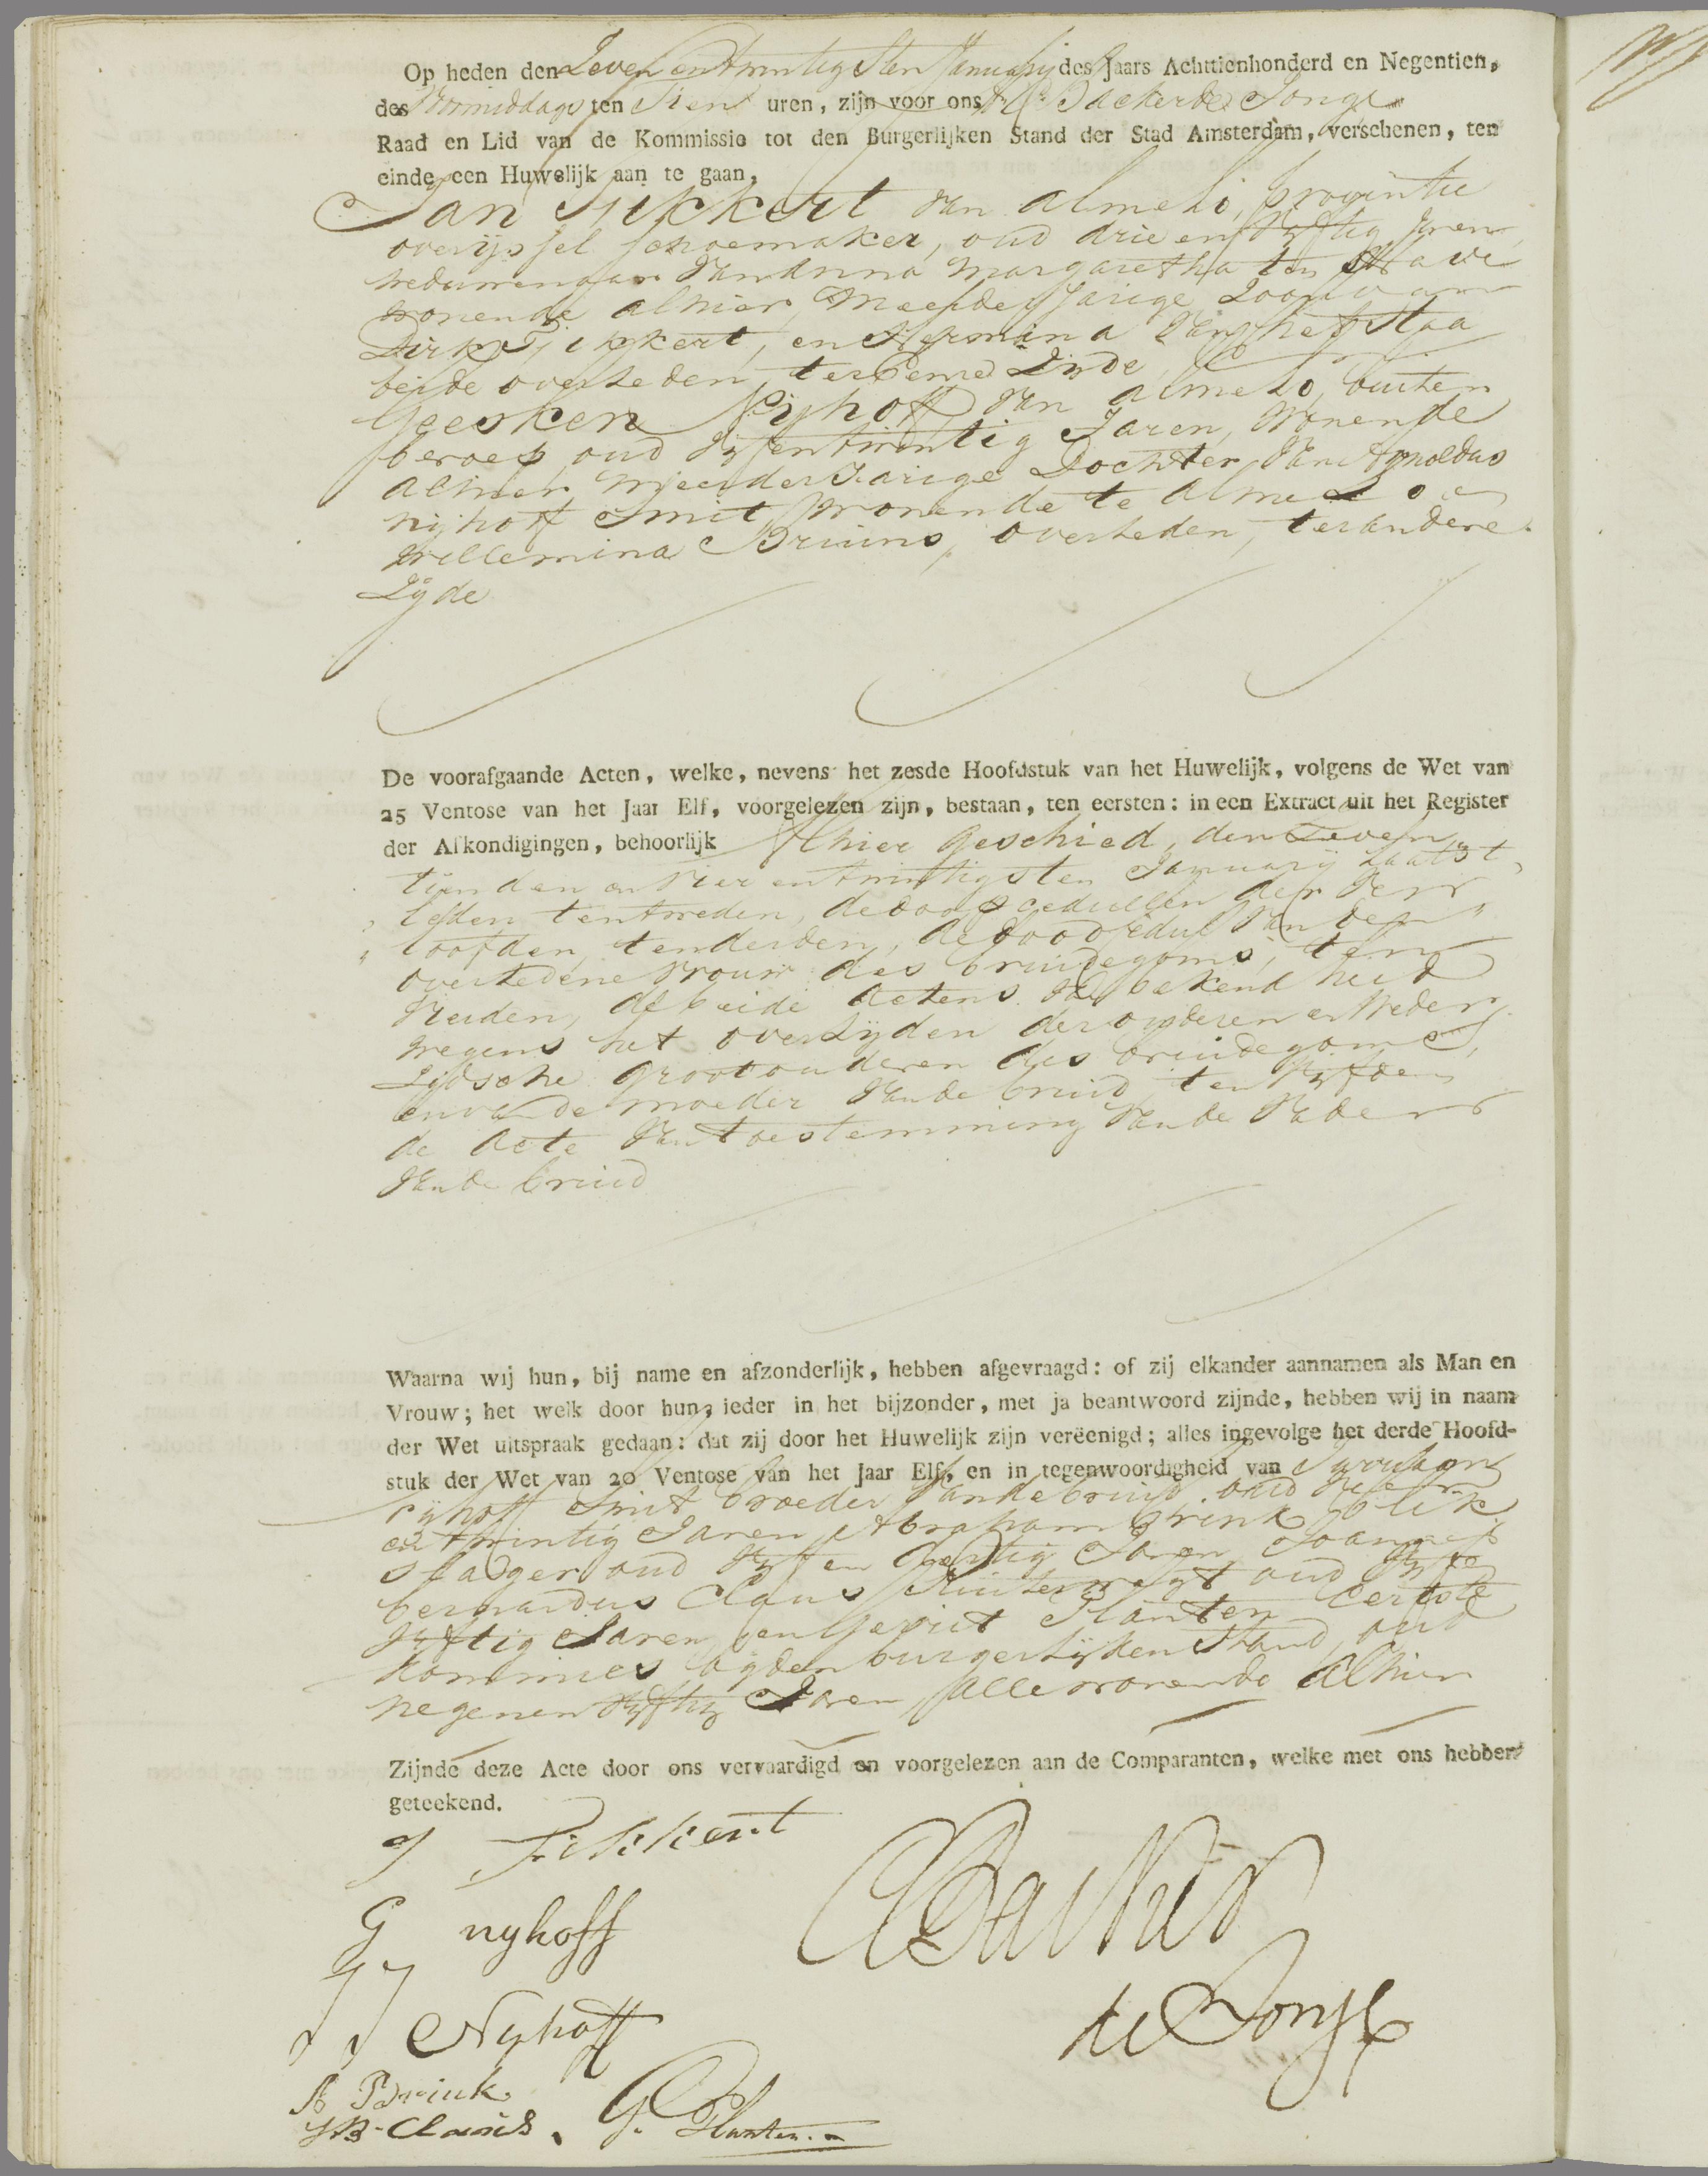 Op heden den Zeven en Twintigsten Januarij des Jaars Achttienhonderd en Negentien,
des Voormiddags ten Tien uren, zijn voor ons C. Backer de Jonge
Raad en Lid van de Kommissie tot den Burgerlijken Stand der Stad Amsterdam, verschenen, ten
einde een Huwelijk aan te gaan,
Jan Fikkert van Almelo, provintie
overijssel schoemaker, oud drie en vyftig Jaren,
weduwenaar van Anna Margaretha ten
wonende alhier, Meerderjarige Zoon van
Dirk Fikkert, en Hermina van
beide overleden, ter eenre Zyde,
Geesken Nijhoff van almelo, buiten
beroep, oud Vyfentwintig Jaren, Wonende
alhier, Meerderjarige Dochter van Arnoldus
nijhoff Smit, wonende te Almelo en
Willemina Bruins, overleden, ter andere
Zyde
De voorafgaande Acten, welke, nevens het zesde Hoofdstuk van het Huwelijk, volgens de Wet van
25 Ventose van het Jaar Elf, voorgelezen zijn, bestaan, ten eersten: in een Extract uit het Register
der Afkondigingen, behoorlijk Alhier geschied, den Zeven
tienden en Vier en twintigsten January laatst
leden, ten tweden, de doopcedullen der Ver
loofden, ten derden, de doodcedul van de
overledene vrouw des bruidegoms, ten
Vierden, de beide actens van bekendheid
wegens het overlyden der ouderen en Weder
Zydsche grootouderen des bruidegoms,
en van de moeder van de bruid, ten vyfden
de acte van toestemming van de Vader
van de bruid
Waarna wij hun, bij name en afzonderlijk, hebben afgevraagd: of zij elkander aannamen als Man en
Vrouw; het welk door hun, ieder in het bijzonder, met ja beantwoord zijnde, hebben wij in naam
der Wet uitspraak gedaan: dat zij door het Huwelijk zijn vereenigd; alles ingevolge het derde Hoofd-
stuk der Wet van 20 Ventose van het Jaar Elf, en in tegenwoordigheid van
nijhoff Smit broeder van de bruid, oud
en twintig Jaren, Abraham Brink, blik
slager oud Vyf en dertig Jaren, Joannes
bernardus Claus oud
Vyftig Jaren, en Gerrit Planten Eerste
kommies by den burgerlyken Stand, oud
negen en vyftig Jaren, alle wonende Alhier
Zijnde deze Acte door ons vervaardigd en voorgelezen aan de Comparanten, welke met ons hebben
geteekend.
J Fikkert
C Backer
G nyhoff
de Jonge
J J Nyhoff
A Brink
J B Claus. G. Planten